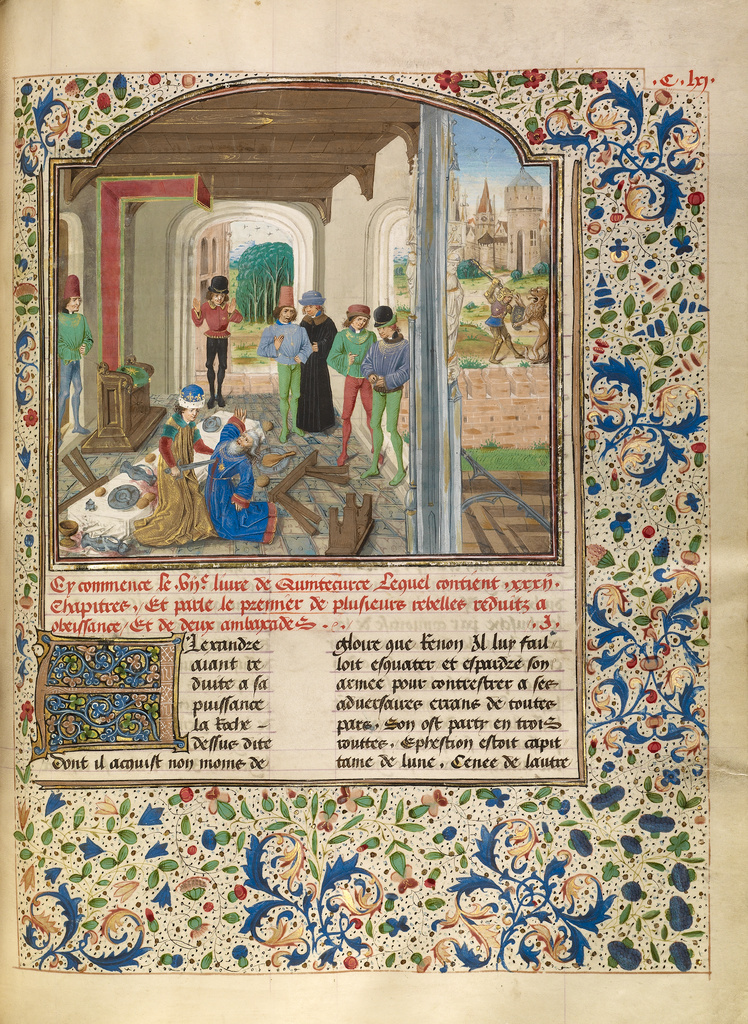 .C. lxi.
Cy commence le .viije liure de Quintecurce Lequel contient .xxxij.
Chapitres, Et parle le premier de plusieurs rebelles reduitz a
obeissance, Et de deux ambaxades. .i.
Alexandre
aiant re
duite a sa
puissance
la Roche
dessus dite
Dont il acquist non moins de
gloire que Renon Il luy fail
loit esquater et espardre son
armee pour contrestrer a ses
aduersaires errans de toutes
pars, Son ost party en trois
routtes, Ephestion estoit capi
taine de lune, Cenee de lautre